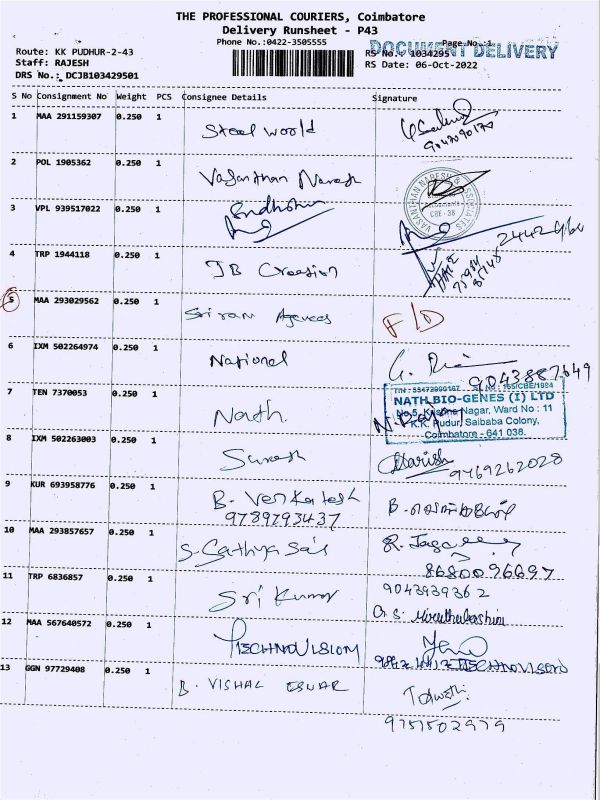 THE PROFESSIONAL COURIERS, Coimbatore
Delivery Runsheet - P43
Phone No.:0422-3505555
Page No.:1
DOCUMENT DELIVERY
Route: KK PUDHUR-2-43
RS No.: 1034295
Staff: RAJESH
RS Date: 06-Oct-2022
DRS No.: DCJB103429501
S No Consignment No Weight PCS Consignee Details Signature
1 MAA 291159307 0.250 1 Steel world
2 POL 1905362 0.250 1 Vasanthan Naresh
VASANTHAN NARESH & ASSOCIATES CBE-38
3 VPL 939517022 0.250 1
4 TRP 1944118 0.250 1 JB Creation
5 MAA 293029562 0.250 1 Sriram F/D
6 IXM 502264974 0.250 1 National
9043887649
7 TEN 7370053 0.250 1 Nath.
NATH BIO-GENES (I) LTD
No.5, Krishna Nagar, Ward No : 11
K.K. Pudur, Saibaba Colony,
Coimbatore - 641 038.
8 IXM 502263003 0.250 1 Suresh Harish 9769262028
9 KUR 693958776 0.250 1 B. Venkatesh
9789793437
10 MAA 293857657 0.250 1 S. Sathya Sai
8680096697
11 TRP 6836857 0.250 1 Sri Kumar 9043939362
12 MAA 567640572 0.250 1 TECHNOVISION
TECHNOVISION
13 GGN 97729408 0.250 1 B. VISHAL ESWAR
9751502979